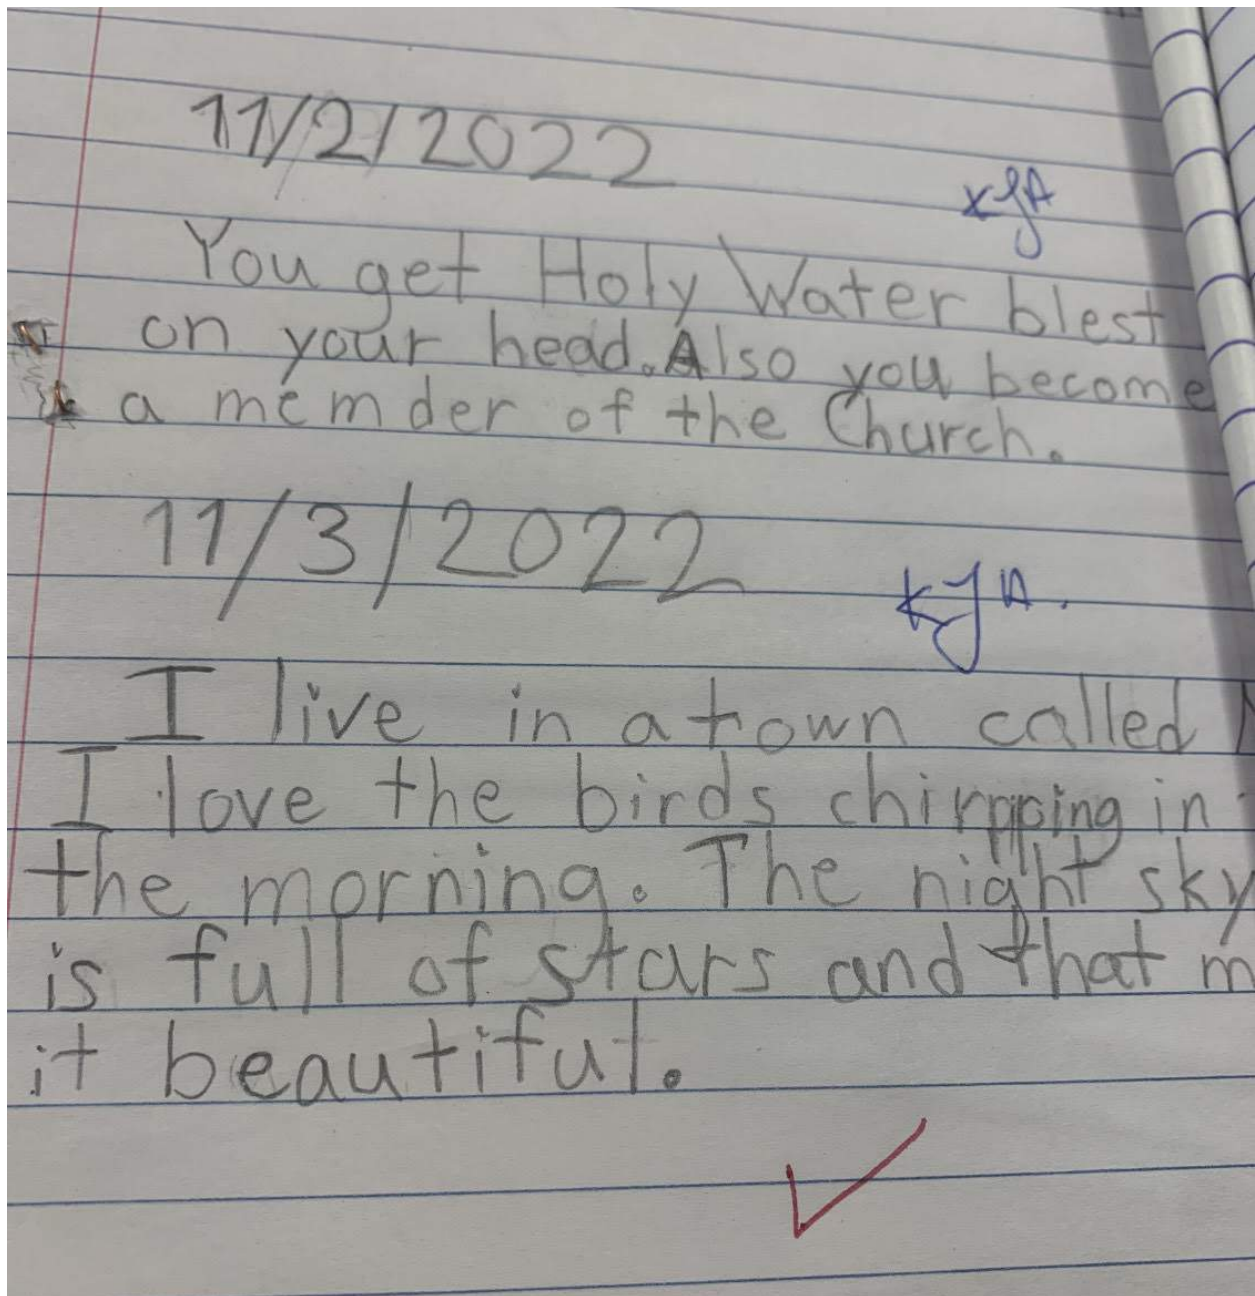 11/2/2022
You get Holy Water blest
on your head. Also you become
a memder of the Church.
11/3/2022
I live in a town called
I love the birds chirpping in
the morning. The night sky
is full of stars and that
it beautiful.